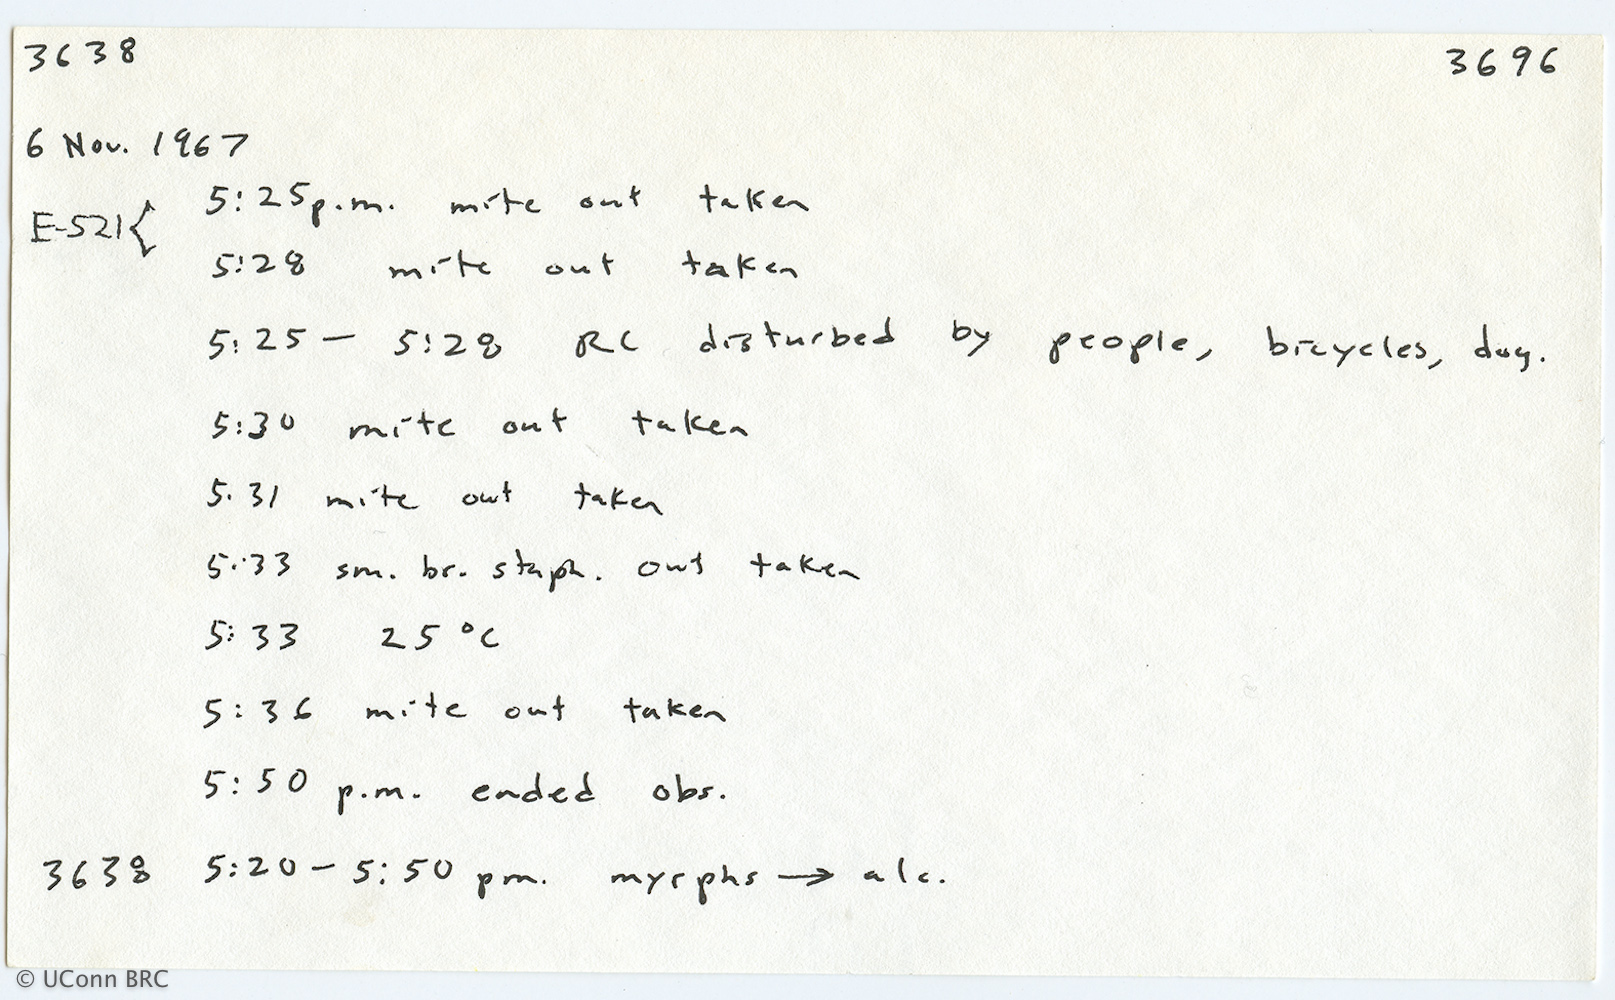 3638 3696
6 Nov. 1967
E-521{ 5:25 p.m. mite out taken
5:28 mite out taken
5:25 – 5:28 RC disturbed by people, bicycles, dog.
5:30 mite out taken
5:31 mite out taken
5:33 sm. br. staph. out taken
5:33 25 °C
5:36 mite out taken
5:50 p.m. ended obs.
3638 5:20 – 5:50 pm. myrphs → alc.
© UConn BRC